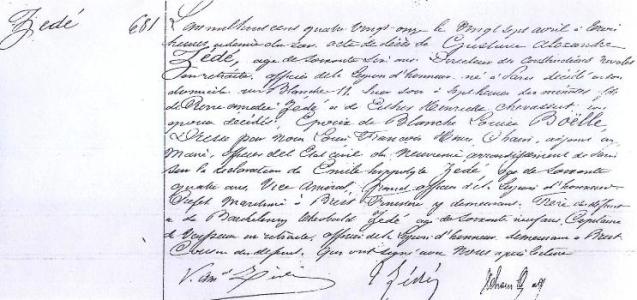 Zédé 681 L'an mil huit cent quatre vingt onze le vingt sept avril à trois
heures et demie du soir acte de décès de Gustave Alexandre
Zédé, âgé de soixante six ans Directeur des constructions navales
en retraite, officier de la Légion d'honneur né à Paris décédé en son
domicile rue Blanche hier soir à sept heures des mariés fils
de Pierre Amédée Zédé et de Esther Henriette Chevassut son
épouse décédés, Epoux de Blanche Louise Boëlle
Dressé par Nous Louis François Henri adjoint au
Maire, officier de l'Etat civil du Neuvième arrondissement de Paris
sur la déclaration de Emile hippolyte Zédé âgé de soixante
quatre ans, Vice Amiral, Grand officier de la Légion d'honneur
Préfet Maritime à Brest Finistère y demeurant, frère du défunt
et de Barthélemy Zédé âgé de soixante ans, Capitaine
de Vaisseau en retraite, officier de la Légion d'honneur demeurant à Brest
du défunt. Qui ont signé avec Nous après lecture
V. am^al Zédé Zédé